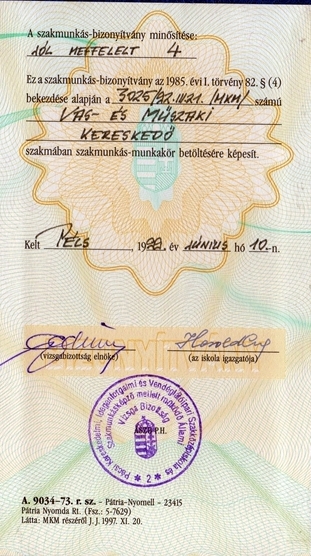 A szakmunkás-bizonyítvány minősítése:
JÓL MEGFELELT 4
Ez a szakmunkás-bizonyítvány az 1985. évi I. törvény 82. § (4)
bekezdése alapján a 3025/92.III.21. /MKM/ számú
VAS- ÉS MŰSZAKI
KERESKEDŐ
szakmában szakmunkás-munkakör betöltésére képesít.
Kelt PÉCS, 1999. év JÚNIUS hó 10.-n.
(vizsgabizottság elnöke)
(az iskola igazgatója)
Pécsi Kereskedelmi, Idegenforgalmi és Vendéglátóipari Szakközépiskola és
Szakmunkásképző mellett működő Állami
Vizsga Bizottság
P.H.
* 2 *
A. 9034–73. r. sz. - Pátria-Nyomell - 23415
Pátria Nyomda Rt. (Fsz.: 5-7629)
Látta: MKM részéről J. J. 1997. XI. 20.